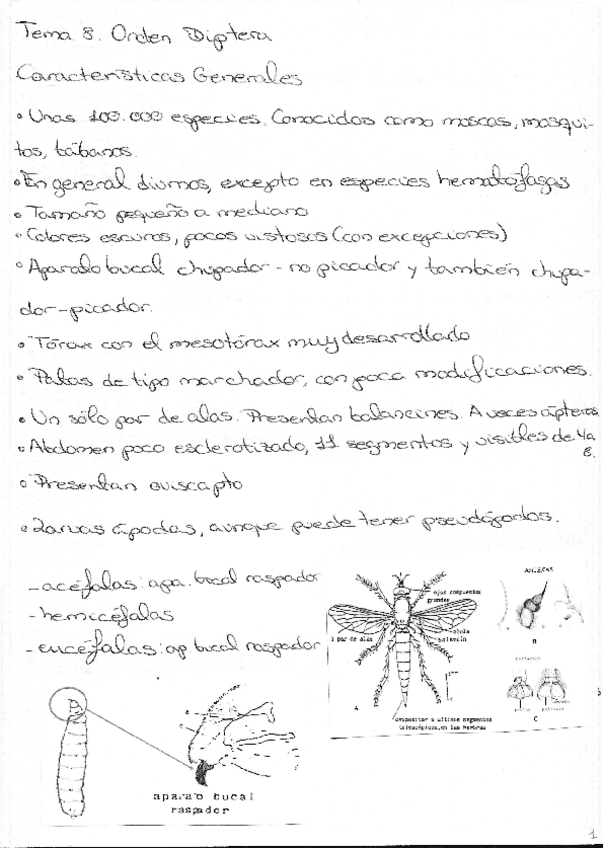 Tema 8. Orden Diptera
Características Generales
• Unas 100.000 especies. Conocidos como moscas, mosqui-
tos, tábanos.
• En general diurnos, excepto en especies hematófagas
• Tamaño pequeño a mediano
• Colores oscuros, pocos vistosos (con excepciones)
• Aparato bucal chupador - no picador y también chupa-
dor-picador.
• Tórax con el mesotórax muy desarrollado
• Patas de tipo marchador, con poca modificaciones.
• Un sólo par de alas. Presentan balancines. A veces ápteros
• Abdomen poco esclerotizado, 11 segmentos y visibles de 4 a
8.
• Presentan oviscapto
• Larvas ápodas, aunque puede tener pseudópodos.
- acéfalas: apa. bucal raspador
- hemicéfalas
- eucéfalas: ap. bucal raspador
ANTENAS
ojos compuestos
grandes
1 par de alas
balancín
A
B
C
ovopositor o últimos segmentos
telescópicos, en las hembras
aparato bucal
raspador
1